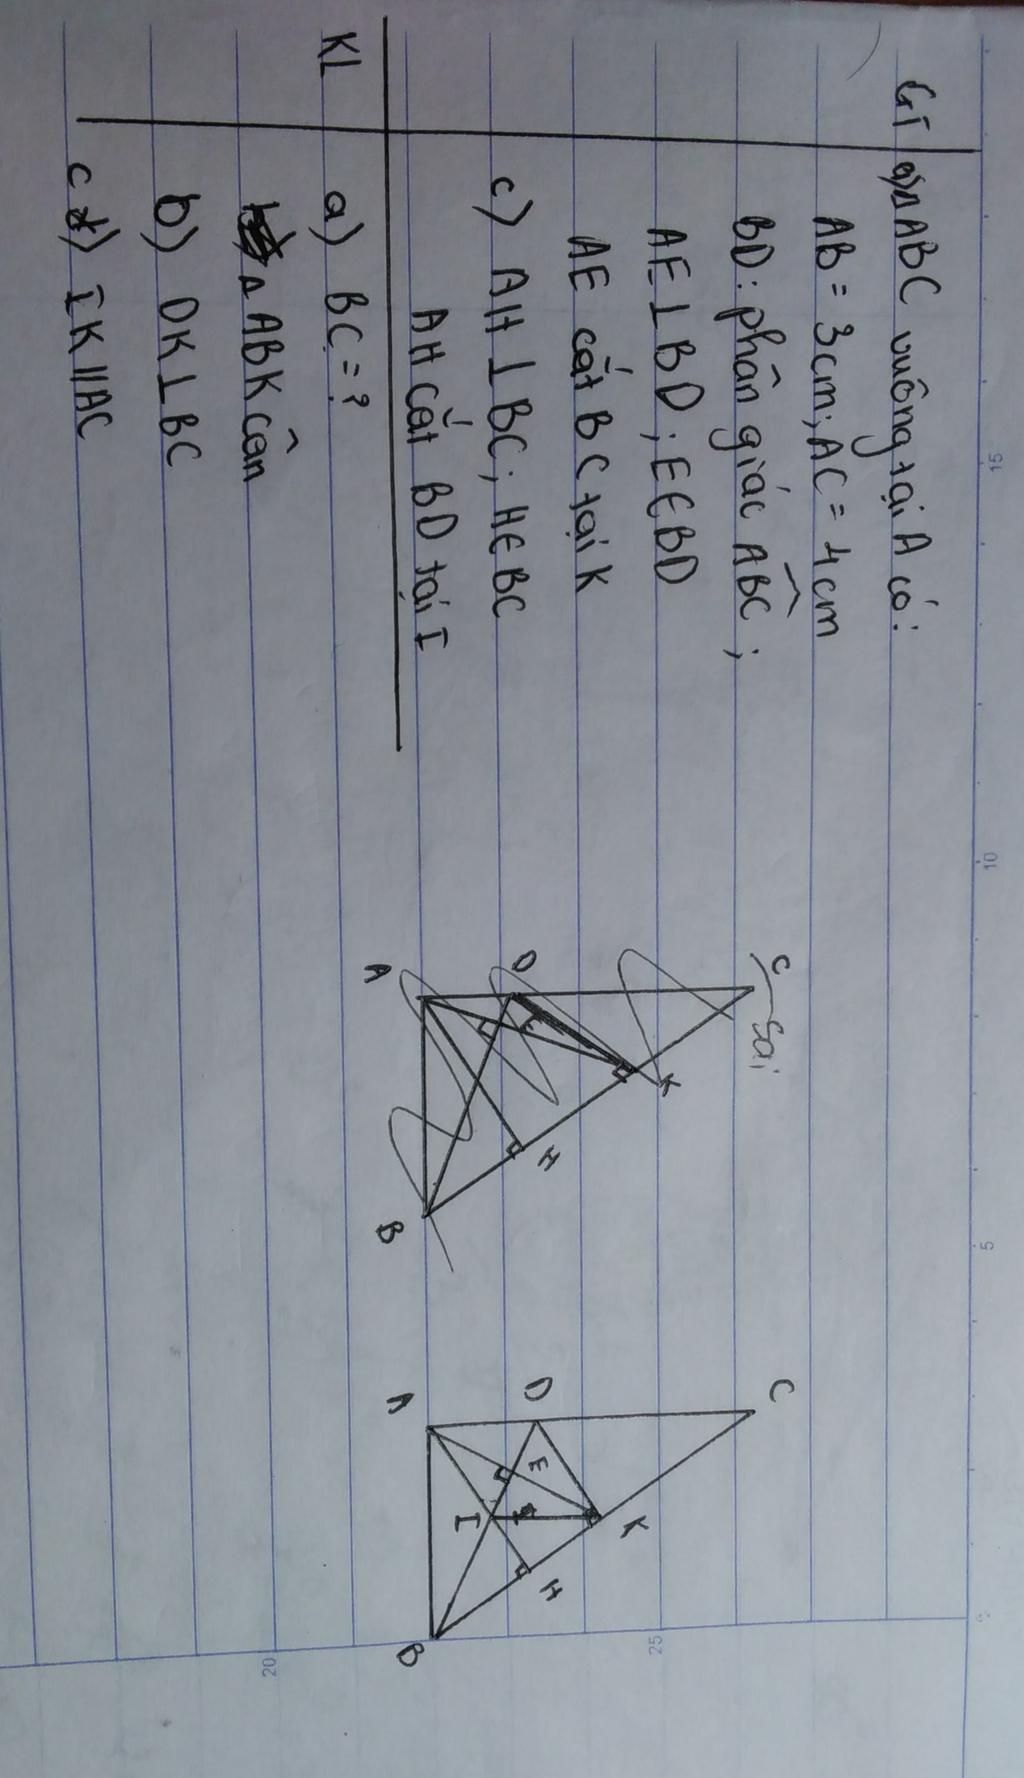 GT a) Δ ABC vuông tại A có:
AB = 3cm; AC = 4cm
BD: phân giác ABC;
AE ⊥ BD; E ∈ BD
AE cắt BC tại K
c) AH ⊥ BC; H ∈ BC
AH cắt BD tại I
KL a) BC = ?
Δ ABK cân
b) DK ⊥ BC
c) IK // AC
C
Sai
D
K
E
A
H
B
C
D
K
E
A
I
H
B
15
10
5
25
20